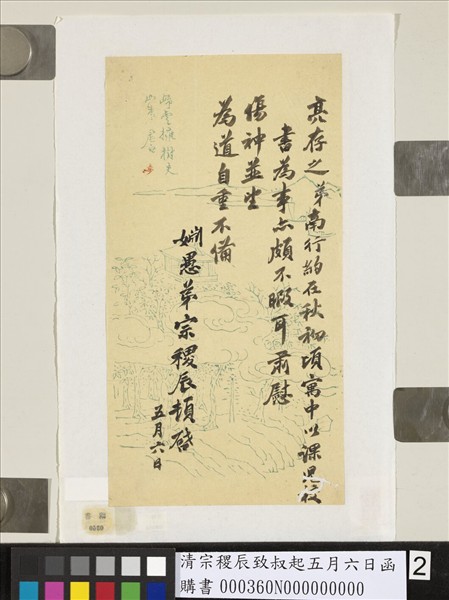 亮存之弟南行約在秋初頃寓中以課兒校
書為事亦頗不暇耳肅慰
傷神並望
為道自重不備
姻愚弟宗稷辰頓啓
五月六日
清宗稷辰致叔起五月六日函
購書 000360N000000000
2